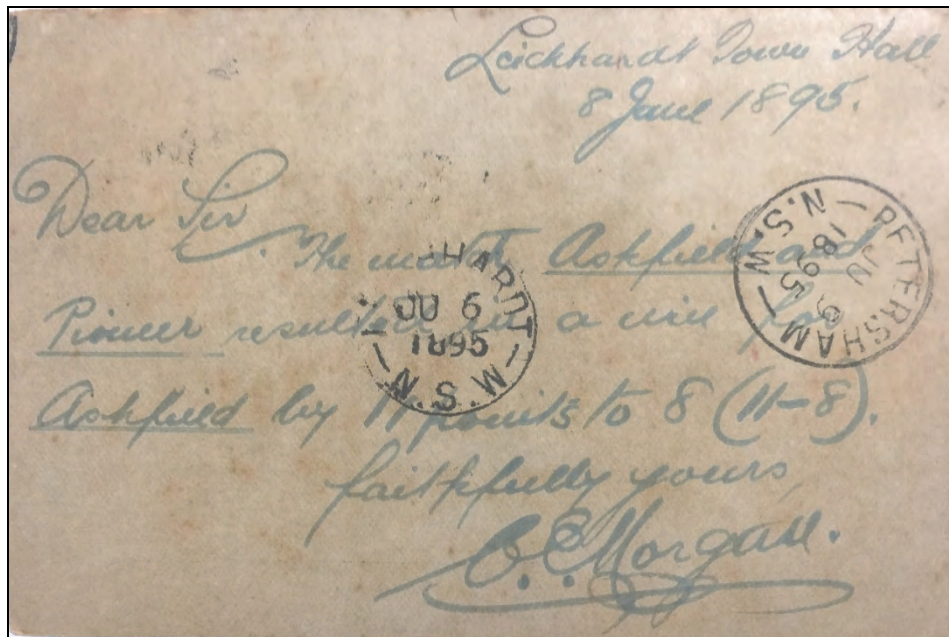 Leichhardt Town Hall
8 June 1895.
Dear Sir
The match Ashfield and
Pioneer resulted in a win for
Ashfield by 11 points to 8 (11-8).
faithfully yours,
C. E. Morgan.
HARDT
JU 6
1895
N.S.W
PETERSHAM
JU 6
1895
N.S.W